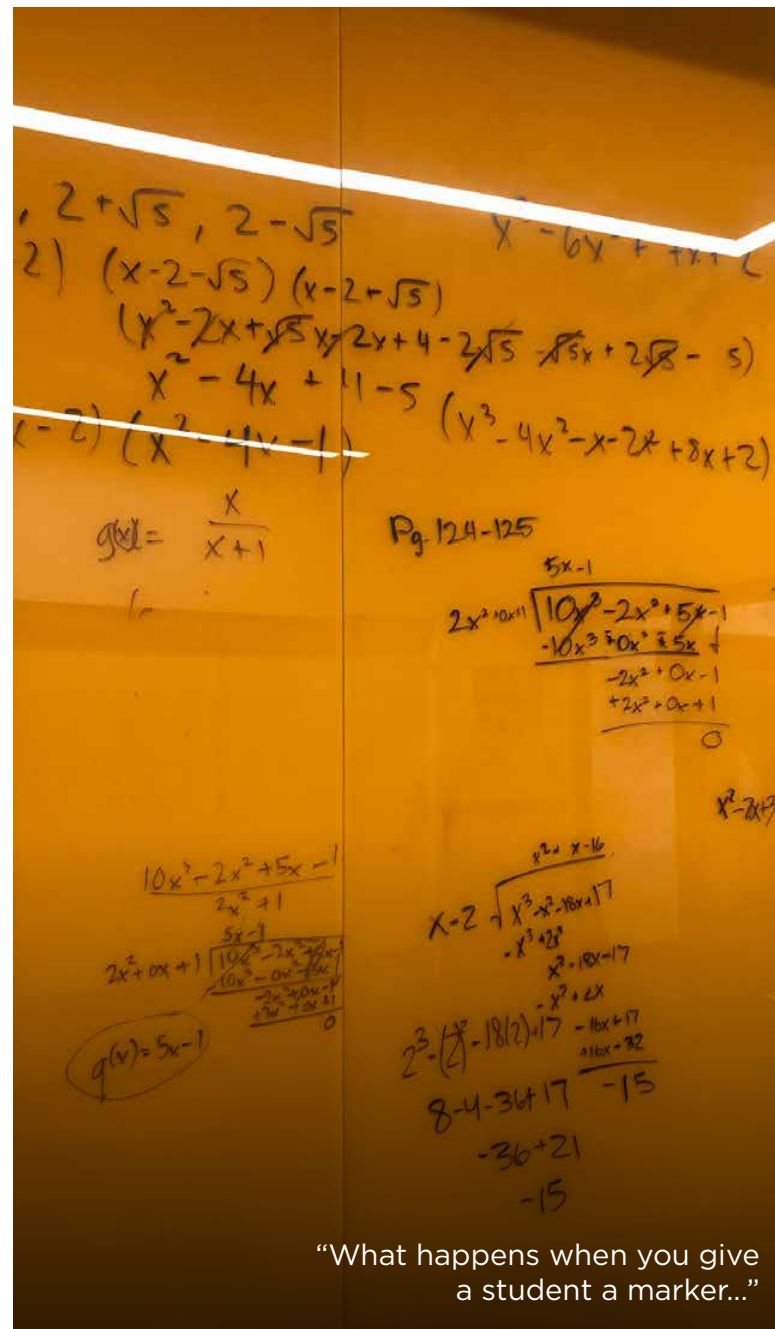 , 2+√5, 2-√5
x³-6x²+7x+2
2) (x-2-√5) (x-2+√5)
(x²-2x+√5x-2x+4-2√5-√5x+2√5-5)
x²-4x+4-5
(x-2)(x²-4x-1)
(x³-4x²-x-2x²+8x+2)
g(x)= x
x+1
Pg. 124-125
5x-1
2x²+0x+1 10x³-2x²+5x-1
-10x³ 0x² 5x
-2x²+0x-1
+2x²+0x+1
0
x²-2x+
10x³-2x²+5x-1
2x²+1
5x-1
2x²+0x+1 10x³-2x²+5x-1
10x³-0x²
-2x²+0x-1
+2x²+0x+1
0
q(x)=5x-1
x²+x-16
x-2 x³-x²-18x+17
-x³+2x²
x²-18x-17
-x²+2x
-16x+17
+16x-32
-15
2³-(2)²-18(2)+17
8-4-36+17
-36+21
-15
“What happens when you give
a student a marker...”